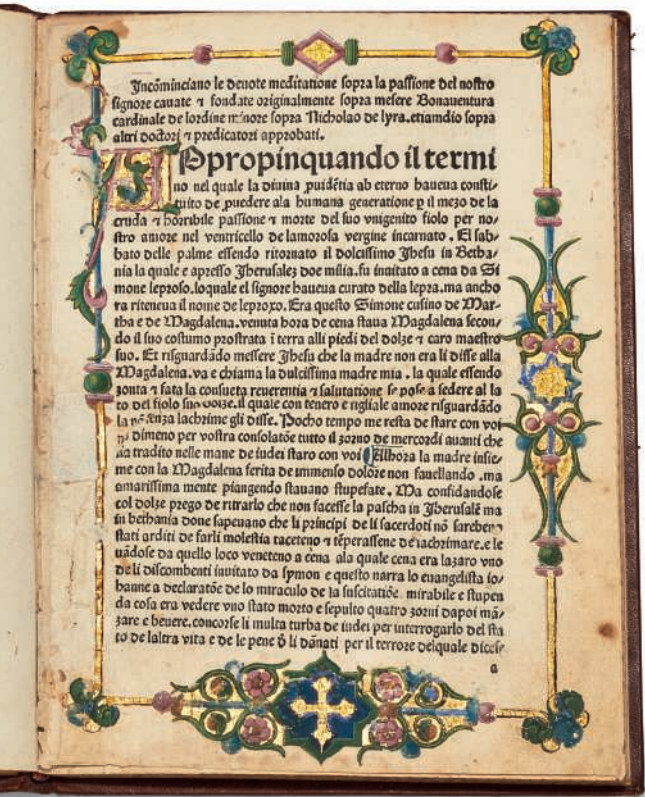 Incõminciano le deuote meditatione sopra la passione del nostro
signore cauate ⁊ fondate originalmente sopra mesere Bonauentura
cardinale de lordine minore sopra Nicholao de lyra. etiamdio sopra
altri doctori ⁊ predicatori approbati.
Apropinquando il termi
no nel quale la diuina ꝓuidẽtia ab eterno haueua consti⸗
tuito de ꝓuedere ala humana generatione ꝑ il mezo de la
cruda ⁊ horribile passione ⁊ morte del suo vnigenito fiolo per no⸗
stro amore nel ventricello de lamorosa vergine incarnato. El sab⸗
bato delle palme essendo ritornato il dolcissimo Jhesu in Betha⸗
nia la quale e apresso Jherusalez doe milia. fu inuitato a cena da Si
mone leproso. loquale el signore haueua curato della lepra. ma ancho
ra riteneua il nome de leproxo. Era questo Simone cusino de Mar⸗
tha e de Magdalena. venuta hora de cena staua Magdalena secon⸗
do il suo costumo prostrata ĩ terra alli piedi del dolze ⁊ caro maestro
suo. Et risguardãdo messere Jhesu che la madre non era li disse alla
Magdalena. va e chiama la dulcissima madre mia. la quale essendo
zonta ⁊ fata la consueta reuerentia ⁊ salutatione se pose a sedere al la
to del fiolo suo il quale con tenero e amore risguardãdo
la lachrime gli disse. Pocho tempo me resta de stare con voi
dimeno per vostra consolatõe tutto il zorno de mercordi auanti che
sia tradito nelle mane de iudei staro con voi Allhora la madre insie⸗
me con la Magdalena ferita de immenso dolore non fauellando. ma
amarissima mente piangendo stauano stupefate. Ma confidandose
col dolze prego de ritrarlo che non facesse la pascha in Jherusalẽ ma
in bethania doue sapeuano che li principi de li sacerdoti nõ
stati arditi de farli molestia taceteno ⁊ tẽperassene de lachrimare. e le
uãdose da quello loco veneteno a cena ala quale cena era lazaro vno
de li discombenti inuitato da symon e questo narra lo euangelista io⸗
hanne a declaratõe de lo miraculo de la suscitatiõe. mirabile e stupen
da cosa era vedere vno stato morto e sepulto quatro zorni dapoi mã⸗
zare e beuere. concorse li multa turba de iudei per interrogarlo del sta
to de laltra vita e de le pene d̾ li dãnati per il terrore delquale dicese
a